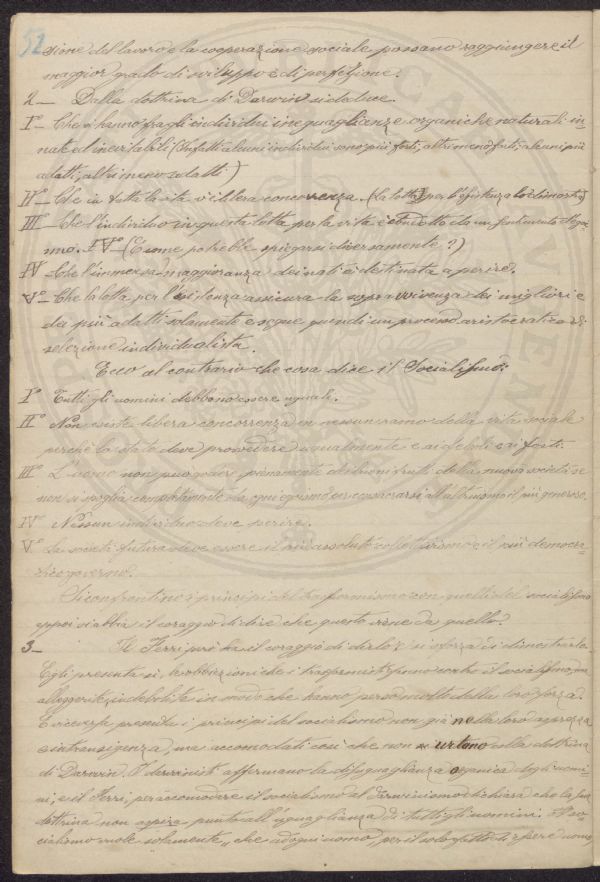 52
sione del lavoro e la cooperazione sociale possano raggiungere il
maggior grado di sviluppo e di perfezione.
2— Dalla dottrina di Darwin si deduce.
I°— Che si hanno fra gli individui ineguaglianze organiche naturali in-
nate ed inevitabili (Infatti alcuni individui sono più forti, altri meno forti, alcuni più
adatti, altri meno adatti.)
II°— Che in tutta la vita v'è libera concorrenza. (La lotta per l'esistenza lo dimostra)
III°— Che l'individuo in questa lotta per la vita è condotto da un sentimento d'egoi-
smo. IV° (E come potrebbe spiegarsi diversamente?)
IV Che l'immensa maggioranza dei nati è destinata a perire.
V°— Che la lotta per l'esistenza assicura la sopravvivenza dei migliori e
dei più adatti solamente e segue quindi un processo aristocratico di
selezione individualista.
Ecco al contrario che cosa dice il Socialismo:
I° Tutti gli uomini debbono essere uguali.
II° Non esiste libera concorrenza in nessun ramo della vita sociale
perchè lo stato deve provvedere ugualmente e ai deboli e ai forti.
III° L'uomo non può godere pienamente dei buoni frutti della nuova società se
non si spoglia completamente da ogni egoismo per consacrarsi all'altruismo il più generoso.
IV° Nessun individuo deve perire.
V° La società futura deve essere il più assoluto collettivismo e il più democra-
tico governo.
Si confrontino i principi del trasformismo con quelli del socialismo
eppoi si abbia il coraggio di dire che questo viene da quello.
3— Il Ferri però ha il coraggio di dirlo e si sforza di dimostrarlo.
Egli presenta sì, le obbiezioni che i trasformisti fanno contro il socialismo, ma
alleggerite, indebolite in modo che hanno perso molto della loro forza.
E viceversa presenta i principi del socialismo non già nella loro asprezza
e intransigenza, ma accomodati così che non urtano colla dottrina
di Darwin. I darvinisti affermano la disuguaglianza organica degli uomi-
ni, e il Ferri, per accomodare il socialismo al darwinismo dichiara che la sua
dottrina non aspira punto all'uguaglianza di tutti gli uomini. Il so-
cialismo vuole solamente, che ad ogni uomo, per il solo fatto di essere uomo